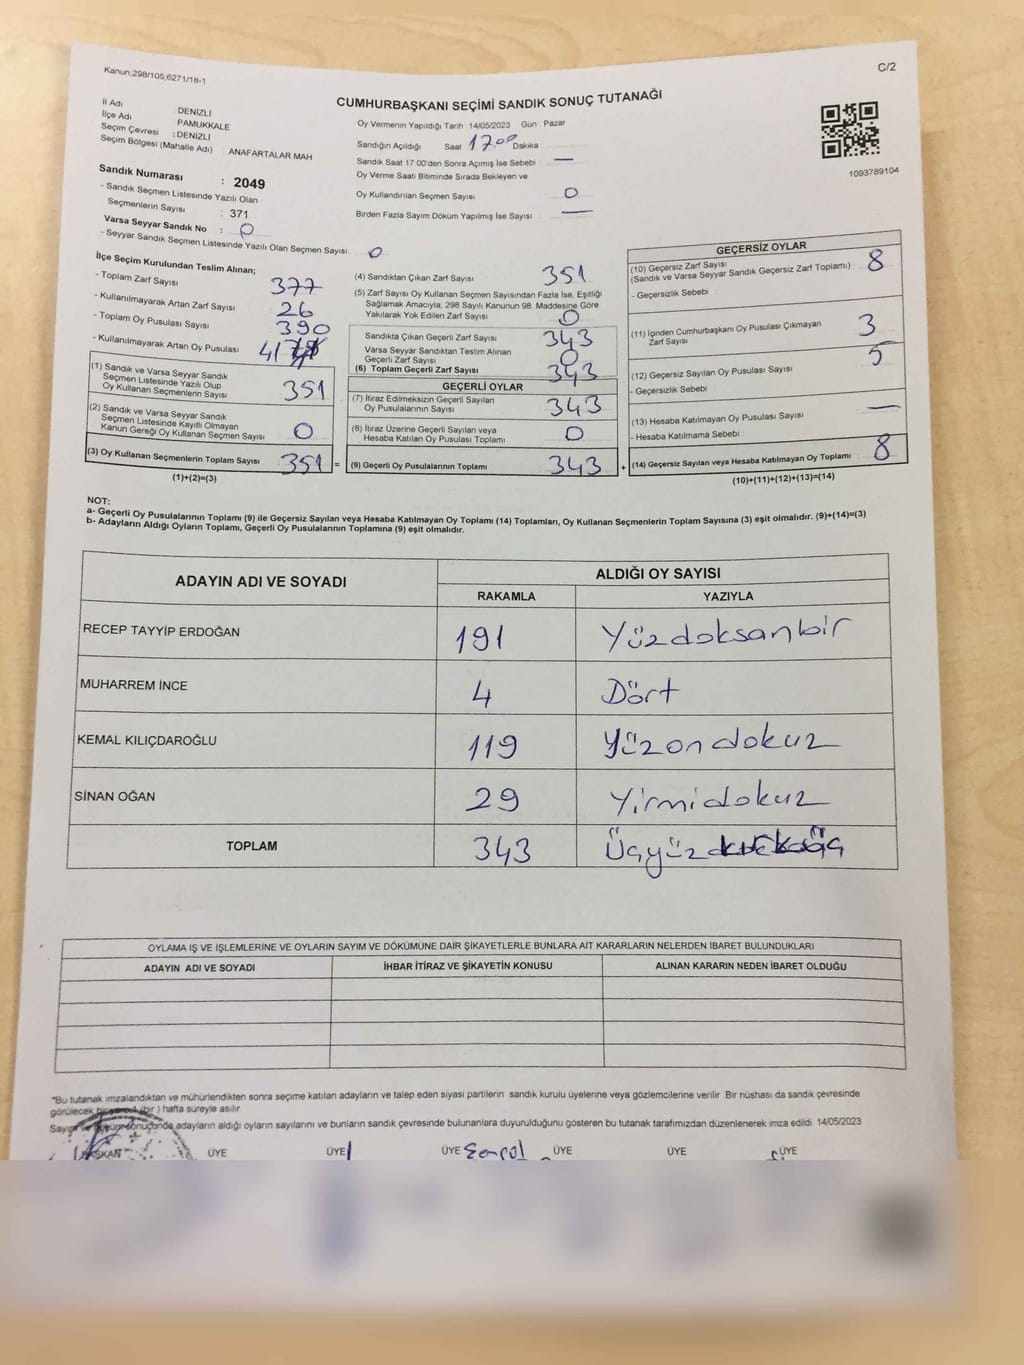 Kanun;298/105,6271/18-1
C/2
CUMHURBAŞKANI SEÇİMİ SANDIK SONUÇ TUTANAĞI
İl Adı : DENİZLİ
İlçe Adı : PAMUKKALE
Seçim Çevresi : DENİZLİ
Seçim Bölgesi (Mahalle Adı) : ANAFARTALAR MAH
Sandık Numarası : 2049
- Sandık Seçmen Listesinde Yazılı Olan
Seçmenlerin Sayısı : 371
Varsa Seyyar Sandık No : 0
- Seyyar Sandık Seçmen Listesinde Yazılı Olan Seçmen Sayısı : 0
Oy Vermenin Yapıldığı Tarih 14/05/2023 Gün Pazar
Sandığın Açıldığı Saat 17 00 Dakika
Sandık Saat 17.00'den Sonra Açımış İse Sebebi —
Oy Verme Saati Bitiminde Sırada Bekleyen ve
Oy Kullandırılan Seçmen Sayısı 0
Birden Fazla Sayım Döküm Yapılmış İse Sayısı —
1093789104
İlçe Seçim Kurulundan Teslim Alınan;
- Toplam Zarf Sayısı 377
- Kullanılmayarak Artan Zarf Sayısı 26
- Toplam Oy Pusulası Sayısı 390
- Kullanılmayarak Artan Oy Pusulası
(1) Sandık ve Varsa Seyyar Sandık
Seçmen Listesinde Yazılı Olup
Oy Kullanan Seçmenlerin Sayısı 351
(2) Sandık ve Varsa Seyyar Sandık
Seçmen Listesinde Kayıtlı Olmayan
Kanun Gereği Oy Kullanan Seçmen Sayısı 0
(3) Oy Kullanan Seçmenlerin Toplam Sayısı 351 =
(1)+(2)=(3)
(4) Sandıktan Çıkan Zarf Sayısı 351
(5) Zarf Sayısı Oy Kullanan Seçmen Sayısından Fazla İse, Eşitliği
Sağlamak Amacıyla, 298 Sayılı Kanunun 98. Maddesine Göre
Yakılarak Yok Edilen Zarf Sayısı 0
Sandıkta Çıkan Geçerli Zarf Sayısı 343
Varsa Seyyar Sandıktan Teslim Alınan
Geçerli Zarf Sayısı 0
(6) Toplam Geçerli Zarf Sayısı 343
GEÇERLİ OYLAR
(7) İtiraz Edilmeksizin Geçerli Sayılan
Oy Pusulalarının Sayısı 343
(8) İtiraz Üzerine Geçerli Sayılan veya
Hesaba Katılan Oy Pusulası Toplamı 0
(9) Geçerli Oy Pusulalarının Toplamı 343 +
GEÇERSİZ OYLAR
(10) Geçersiz Zarf Sayısı
(Sandık ve Varsa Seyyar Sandık Geçersiz Zarf Toplamı) 8
- Geçersizlik Sebebi
(11) İçinden Cumhurbaşkanı Oy Pusulası Çıkmayan
Zarf Sayısı 3
(12) Geçersiz Sayılan Oy Pusulası Sayısı 5
- Geçersizlik Sebebi
(13) Hesaba Katılmayan Oy Pusulası Sayısı —
- Hesaba Katılmama Sebebi
(14) Geçersiz Sayılan veya Hesaba Katılmayan Oy Toplamı 8
(10)+(11)+(12)+(13)=(14)
NOT:
a- Geçerli Oy Pusulalarının Toplamı (9) ile Geçersiz Sayılan veya Hesaba Katılmayan Oy Toplamı (14) Toplamları, Oy Kullanan Seçmenlerin Toplam Sayısına (3) eşit olmalıdır. (9)+(14)=(3)
b- Adayların Aldığı Oyların Toplamı, Geçerli Oy Pusulalarının Toplamına (9) eşit olmalıdır.
ADAYIN ADI VE SOYADI
ALDIĞI OY SAYISI
RAKAMLA YAZIYLA
RECEP TAYYİP ERDOĞAN 191 Yüzdoksanbir
MUHARREM İNCE 4 Dört
KEMAL KILIÇDAROĞLU 119 Yüzondokuz
SİNAN OĞAN 29 Yirmidokuz
TOPLAM 343 Üçyüzkırküç
OYLAMA İŞ VE İŞLEMLERİNE VE OYLARIN SAYIM VE DÖKÜMÜNE DAİR ŞİKAYETLERLE BUNLARA AİT KARARLARIN NELERDEN İBARET BULUNDUKLARI
ADAYIN ADI VE SOYADI İHBAR İTİRAZ VE ŞİKAYETİN KONUSU ALINAN KARARIN NEDEN İBARET OLDUĞU
"Bu tutanak imzalandıktan ve mühürlendikten sonra seçime katılan adayların ve talep eden siyasi partilerin sandık kurulu üyelerine veya gözlemcilerine verilir Bir nüshası da sandık çevresinde
görülecek bir yere 1 (bir ) hafta süreyle asılır
Sayım ve döküm sonuçunda adayların aldığı oyların sayılarını ve bunların sandık çevresinde bulunanlara duyurulduğunu gösteren bu tutanak tarafımızdan düzenlenerek imza edildi. 14/05/2023
BAŞKAN ÜYE ÜYE ÜYE ÜYE ÜYE ÜYE